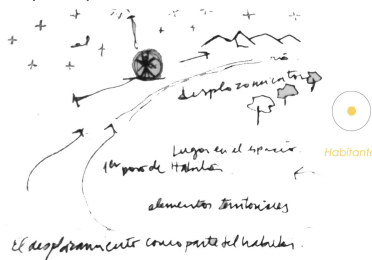 el
desplazamientos
Lugar en el espacio.
1er paso de Habitar
Habitante
elementos territoriales
El desplazamiento como parte del habitar.